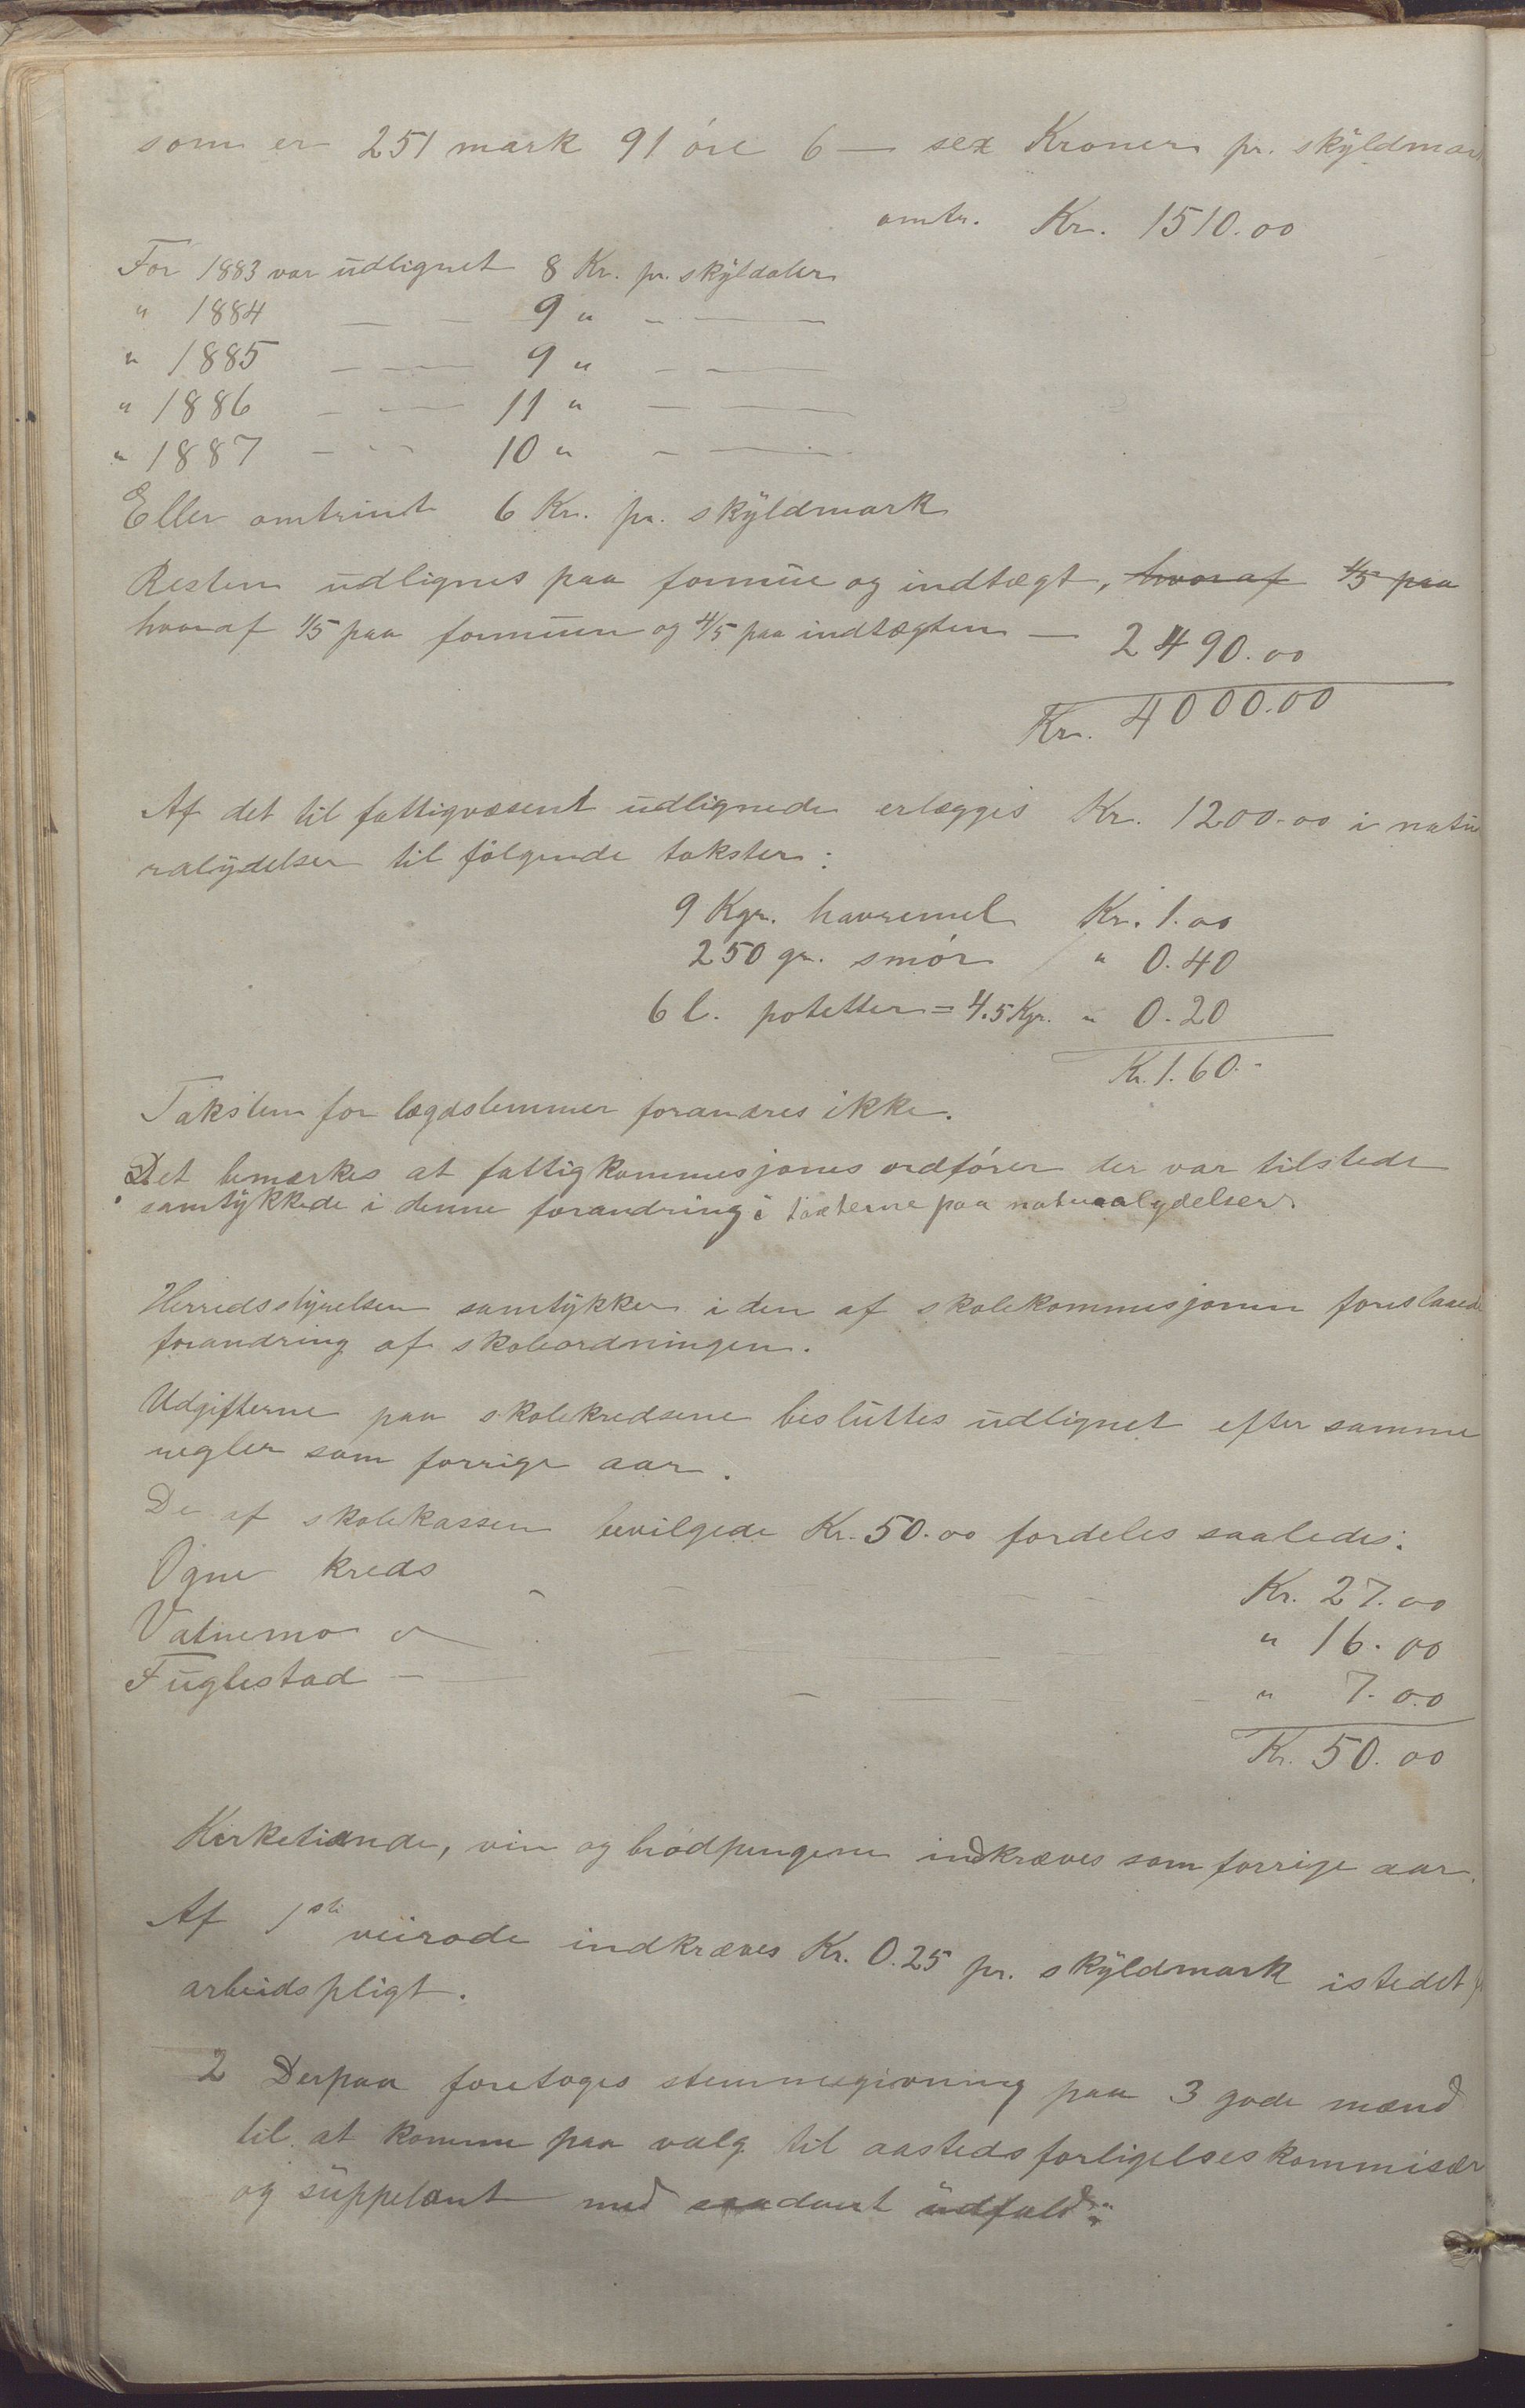 som er 251 mark 91 øre 6 — sex Kroner pr. skÿldmark
omtr. Kr. 1510.00
For 1883 var udlignet 8 Kr. pr. skÿldaler
" 1884 — — 9 " — —
" 1885 — — 9 " — —
" 1886 — — 11 " — —
" 1887 — — 10 " — —
Eller omtrint 6 Kr. pr. skÿldmark
Resten udlignes paa formue og indtægt, hvoraf 4/5 paa
hvoraf 1/5 paa formuen og 4/5 paa indtægten — 2490.00
Kr. 4000.00
Af det til fattigvæsent udlignede erlægges Kr. 1200.00 i natu
ralÿdelser til følgende takster:
9 Kgr. havremel Kr. 1.00
250 gr. smør " 0.40
6 l. potetter = 4.5 Kgr. " 0.20
Kr. 1.60.-
Taksten for lægdslemmer forandres ikke.
Det bemærkes at fattigkommesjones ordfører der var tilstede
samtÿkkede i denne forandring i taxterne paa naturalydelser.
Herredsstÿrelsen samtÿkker i den af skolekommesjonen foreslaaede
forandring af skoleordningen.
Udgifterne paa skolekredsene besluttes udlignet efter samme
regler som forrige aar.
De af skolekassen bevilgede Kr. 50.00 fordeles saaledes:
Ogne kreds Kr. 27.00
Vatnemo " " 16.00
Fuglestad — " 7.00
Kr. 50.00
Kirketiende, vin og brødpengene indkræves som forrige aar.
Af 1ste veirode indkræves Kr. 0.25 pr. skÿldmark istedet f
arbeidspligt.
2 Derpaa foretoges stemmesgivning paa 3 gode mænd
til at komme paa valg til aastedsforligelseskommisær
og suppelant med saadant udfald: